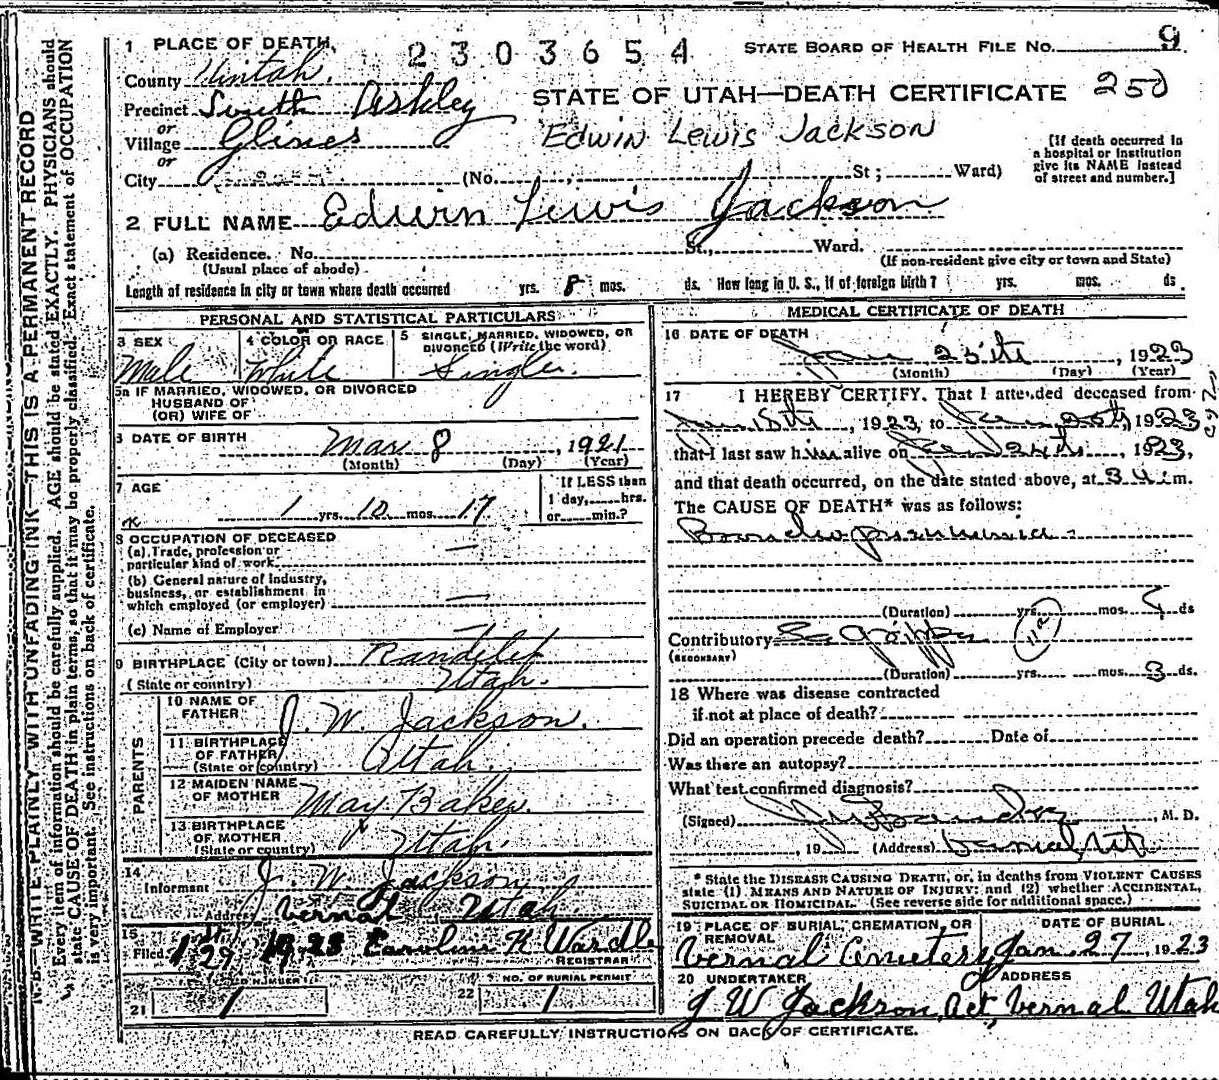 N.B.—WRITE PLAINLY, WITH UNFADING INK—THIS IS A PERMANENT RECORD
Every item of information should be carefully supplied. AGE should be stated EXACTLY. PHYSICIANS should
state CAUSE OF DEATH in plain terms, so that it may be properly classified. Exact statement of OCCUPATION
is very important. See instructions on back of certificate.
1 PLACE OF DEATH
2303654
STATE BOARD OF HEALTH FILE No. 9
County Uintah
Precinct South Ashley
STATE OF UTAH—DEATH CERTIFICATE 250
or
Village Glines
Edwin Lewis Jackson
or
City (No. St; Ward)
[If death occurred in
a hospital or institution
give its NAME instead
of street and number.]
2 FULL NAME Edwin Lewis Jackson
(a) Residence. No. St., Ward.
(Usual place of abode)
(If non-resident give city or town and State)
Length of residence in city or town where death occurred yrs. 8 mos. ds. How long in U. S., if of foreign birth? yrs. mos. ds.
PERSONAL AND STATISTICAL PARTICULARS
3 SEX
Male
4 COLOR OR RACE
White
5 SINGLE, MARRIED, WIDOWED, OR
DIVORCED (Write the word)
Single.
5a IF MARRIED, WIDOWED, OR DIVORCED
HUSBAND OF
(OR) WIFE OF
6 DATE OF BIRTH Mar 8, 1921
(Month) (Day) (Year)
7 AGE
1 yrs. 10 mos. 17
If LESS than
1 day, hrs.
or min.?
8 OCCUPATION OF DECEASED
(a) Trade, profession or
particular kind of work
(b) General nature of Industry,
business, or establishment in
which employed (or employer)
(c) Name of Employer
9 BIRTHPLACE (City or town) Randlet
(State or country) Utah.
PARENTS
10 NAME OF
FATHER J. W. Jackson.
11 BIRTHPLACE
OF FATHER
(State or country) Utah.
12 MAIDEN NAME
OF MOTHER May Baker.
13 BIRTHPLACE
OF MOTHER
(State or country) Utah.
14
Informant J. W. Jackson
Address Vernal Utah
15
Filed 1-29 1923 Caroline K Wardle
REGISTRAR
21 1
NO. OF BURIAL PERMIT
22 1
MEDICAL CERTIFICATE OF DEATH
16 DATE OF DEATH
Jan 25th, 1923
(Month) (Day) (Year)
17 I HEREBY CERTIFY, That I attended deceased from
Jan 18th, 1923, to Jan 1923
that I last saw him alive on Jan 1923,
and that death occurred, on the date stated above, at 3 m.
The CAUSE OF DEATH* was as follows:
Broncho pneumonia
(Duration) yrs. mos. ds
Contributory La Grippe
(SECONDARY)
(Duration) yrs. mos. 3 ds.
18 Where was disease contracted
if not at place of death?
Did an operation precede death? Date of
Was there an autopsy?
What test confirmed diagnosis?
(Signed) , M. D.
, 19 (Address) Vernal, Utah
* State the DISEASE CAUSING DEATH, or, in deaths from VIOLENT CAUSES
state (1) MEANS AND NATURE OF INJURY; and (2) whether ACCIDENTAL,
SUICIDAL OR HOMICIDAL. (See reverse side for additional space.)
19 PLACE OF BURIAL, CREMATION, OR
REMOVAL
Vernal Cemetery
DATE OF BURIAL
Jan. 27, 1923
20 UNDERTAKER
J W Jackson, Act,
ADDRESS
Vernal Utah
READ CAREFULLY INSTRUCTIONS ON BACK OF CERTIFICATE.